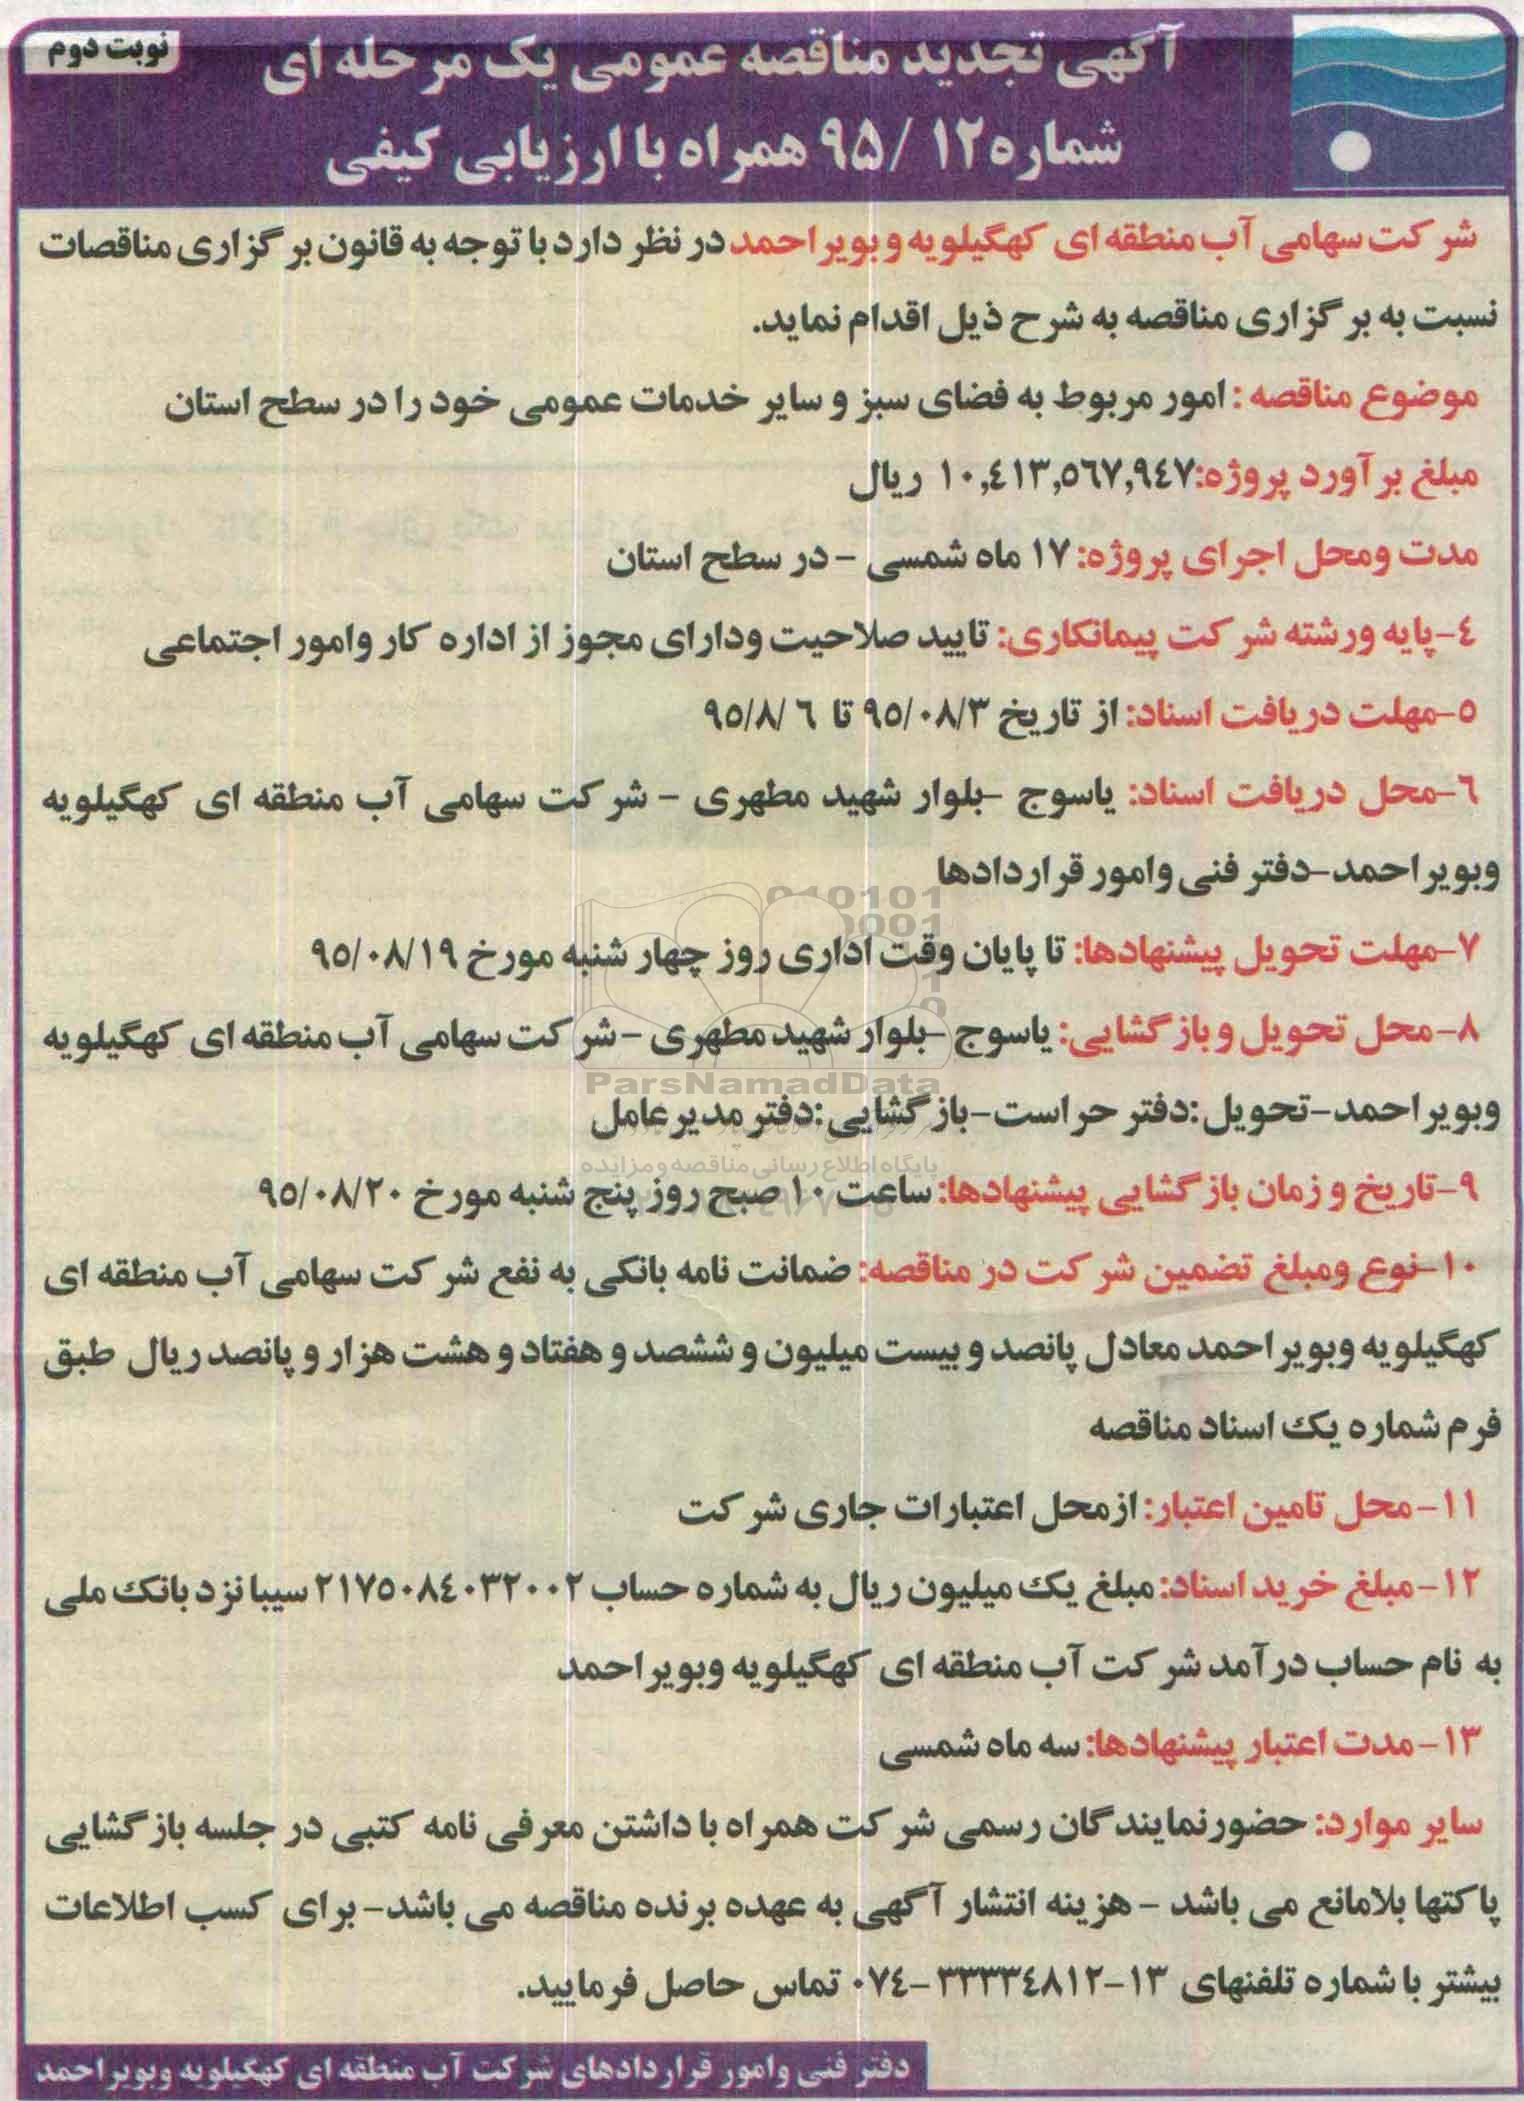 نوبت دوم
آگهی تجدید مناقصه عمومی یک مرحله ای
شماره ۱۲ /۹۵ همراه با ارزیابی کیفی
شرکت سهامی آب منطقه ای کهگیلویه و بویراحمد در نظر دارد با توجه به قانون برگزاری مناقصات
نسبت به برگزاری مناقصه به شرح ذیل اقدام نماید.
موضوع مناقصه : امور مربوط به فضای سبز و سایر خدمات عمومی خود را در سطح استان
مبلغ برآورد پروژه: ۱۰,٤۱۳,٥٦۷,۹٤۷ ریال
مدت ومحل اجرای پروژه: ۱۷ ماه شمسی - در سطح استان
٤-پایه ورشته شرکت پیمانکاری: تایید صلاحیت ودارای مجوز از اداره کار وامور اجتماعی
٥-مهلت دریافت اسناد: از تاریخ ۹٥/۰۸/۳ تا ۹٥/۸/٦
٦-محل دریافت اسناد: یاسوج -بلوار شهید مطهری - شرکت سهامی آب منطقه ای کهگیلویه
وبویراحمد-دفتر فنی وامور قراردادها
۷-مهلت تحویل پیشنهادها: تا پایان وقت اداری روز چهار شنبه مورخ ۹٥/۰۸/۱۹
۸- محل تحویل و بازگشایی: یاسوج -بلوار شهید مطهری -شرکت سهامی آب منطقه ای کهگیلویه
وبویراحمد-تحویل :دفتر حراست-بازگشایی :دفتر مدیرعامل
۹-تاریخ و زمان بازگشایی پیشنهادها: ساعت ۱۰ صبح روز پنج شنبه مورخ ۹٥/۰۸/۲۰
۱۰-نوع ومبلغ تضمین شرکت در مناقصه: ضمانت نامه بانکی به نفع شرکت سهامی آب منطقه ای
کهگیلویه وبویراحمد معادل پانصد و بیست میلیون و ششصد و هفتاد و هشت هزار و پانصد ریال طبق
فرم شماره یک اسناد مناقصه
۱۱- محل تامین اعتبار: از محل اعتبارات جاری شرکت
۱۲- مبلغ خرید اسناد: مبلغ یک میلیون ریال به شماره حساب ۲۱۷٥۰۸٤۰۳۲۰۰۲ سیبا نزد بانک ملی
به نام حساب درآمد شرکت آب منطقه ای کهگیلویه وبویراحمد
۱۳- مدت اعتبار پیشنهادها: سه ماه شمسی
سایر موارد: حضورنمایندگان رسمی شرکت همراه با داشتن معرفی نامه کتبی در جلسه بازگشایی
پاکتها بلامانع می باشد - هزینه انتشار آگهی به عهده برنده مناقصه می باشد- برای کسب اطلاعات
بیشتر با شماره تلفنهای ۱۳-۳۳۳۳٤۸۱۲-۰۷٤ تماس حاصل فرمایید.
دفتر فنی وامور قراردادهای شرکت آب منطقه ای کهگیلویه وبویراحمد
ParsNamadData
پایگاه اطلاع رسانی مناقصه و مزایده